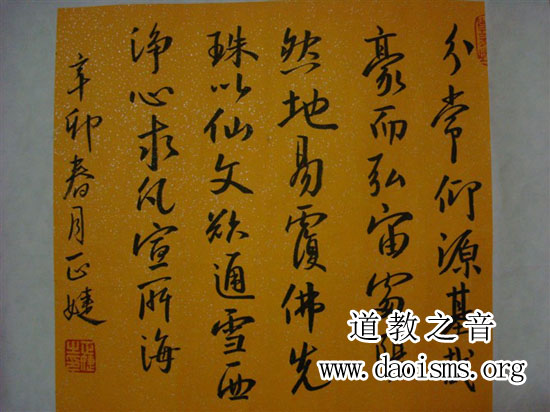 分常仰源基
豪而弘宙
然地易覆佛先
珠以仙文欲通雪西
净心求凡宣所海
辛卯春月正婕
道教之音
www.daoisms.org